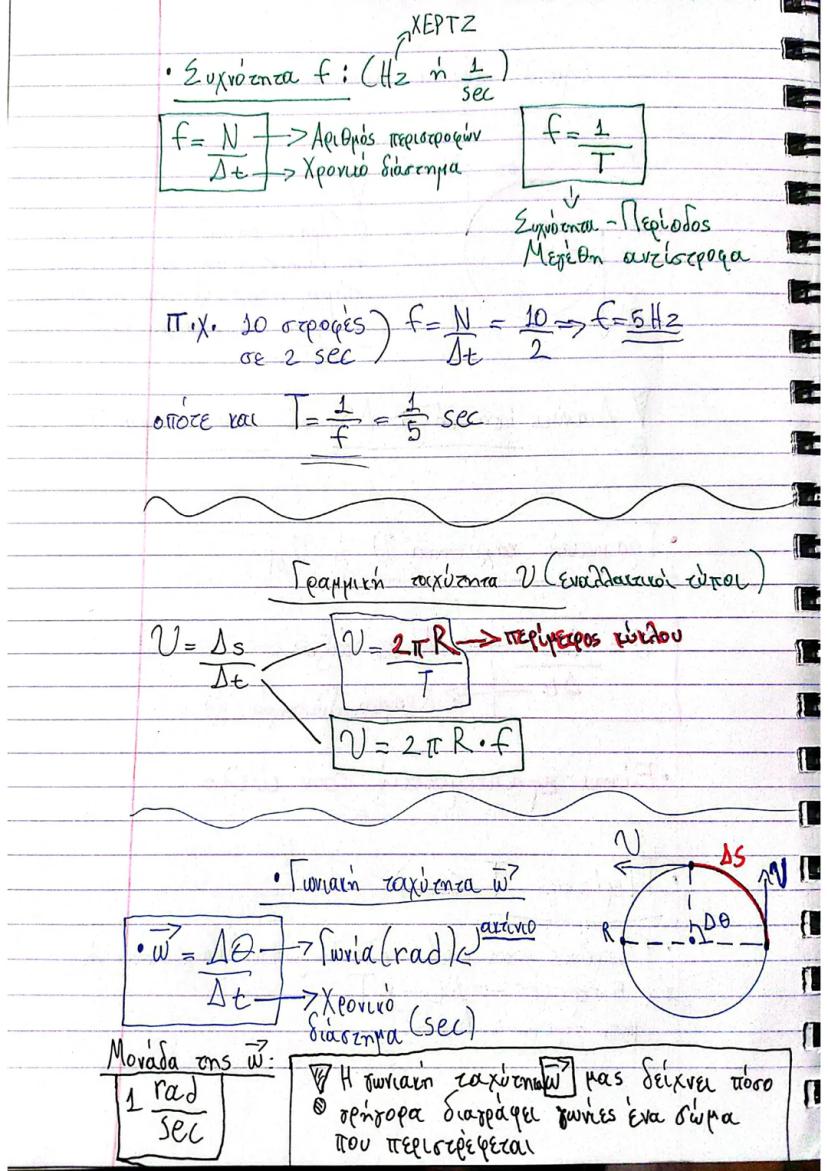 ΧΕΡΤΖ
• Συχνότητα f: (Hz ή 1/sec)
f = N/Δt → Αριθμός περιστροφών
→ Χρονικό διάστημα
f = 1/T
Συχνότητα - Περίοδος
Μεγέθη αντίστροφα
π.χ. 10 στροφές
σε 2 sec) f = N/Δt = 10/2 ⇒ f = 5 Hz
οπότε και T = 1/f = 1/5 sec
Γραμμική ταχύτητα υ (εναλλακτικοί τύποι)
υ = Δs/Δt
υ = 2πR/T → περίμετρος κύκλου
υ = 2πR·f
• Γωνιακή ταχύτητα w⃗
• w⃗ = Δθ/Δt → Γωνία (rad) ακτίνιο
→ Χρονικό
διάστημα (sec)
υ ΔS υ
R Δθ
Μονάδα της w⃗:
1 rad/sec
Η γωνιακή ταχύτητα w⃗ μας δείχνει πόσο
γρήγορα διαγράφει γωνίες ένα σώμα
που περιστρέφεται